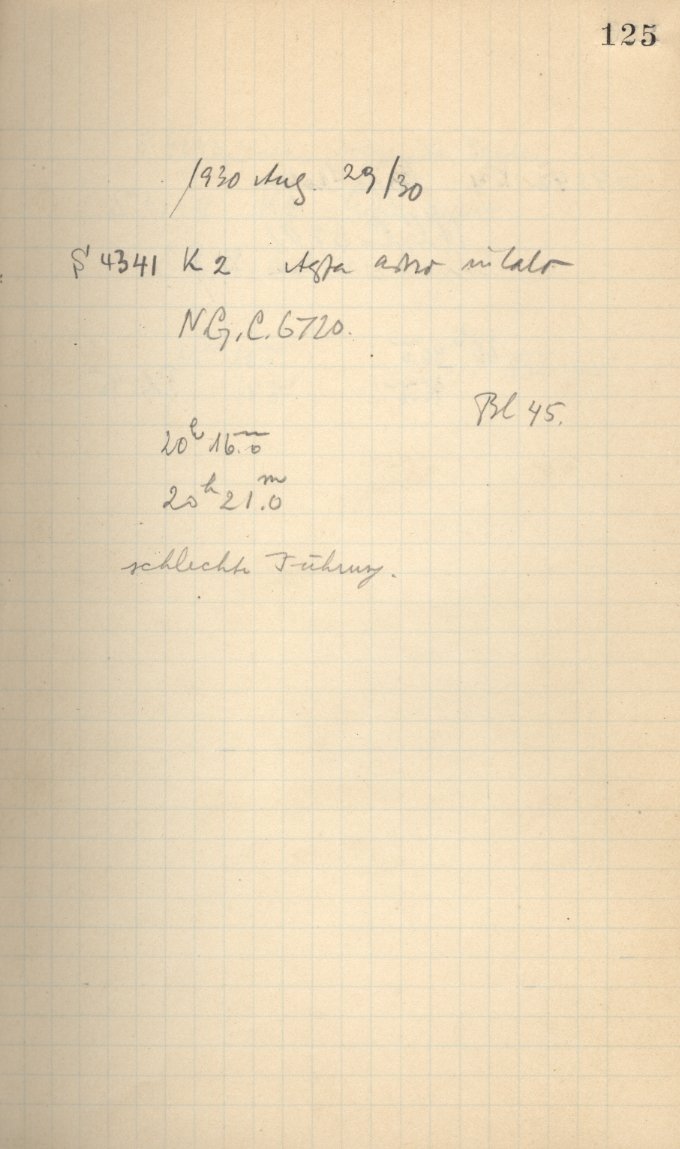 125
1930 Aug. 29/30
S 4341 K 2 Agfa astro
N.G.C. 6720.
Bl 45.
20h 16.m0
20h 21.m0
schlechte Führung.